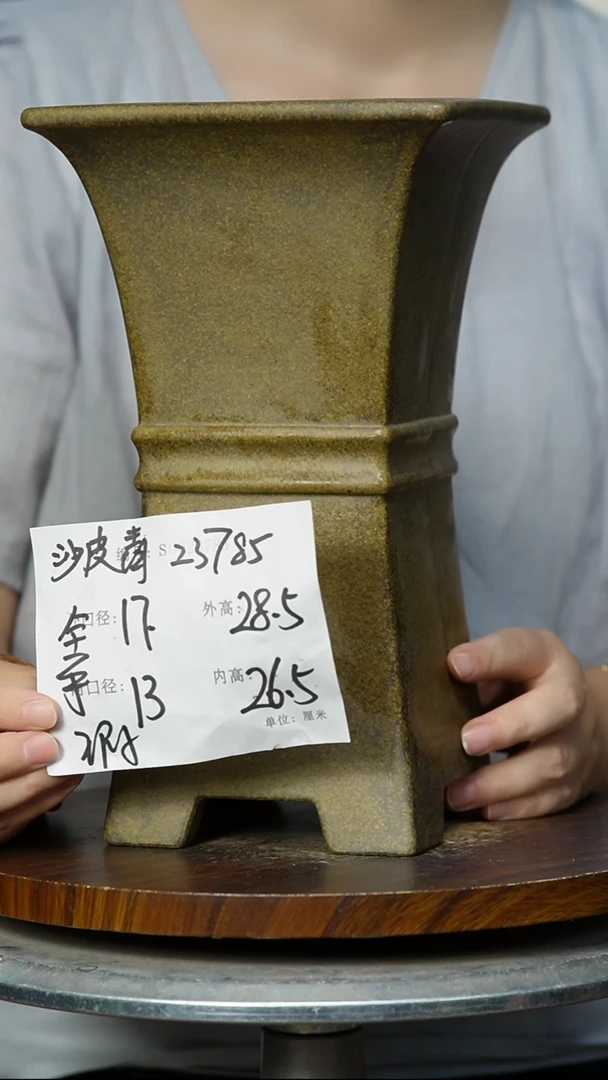 沙皮青 S 23785
口径: 17 外高: 28.5
全手
口径: 13 内高: 26.5
单位: 厘米